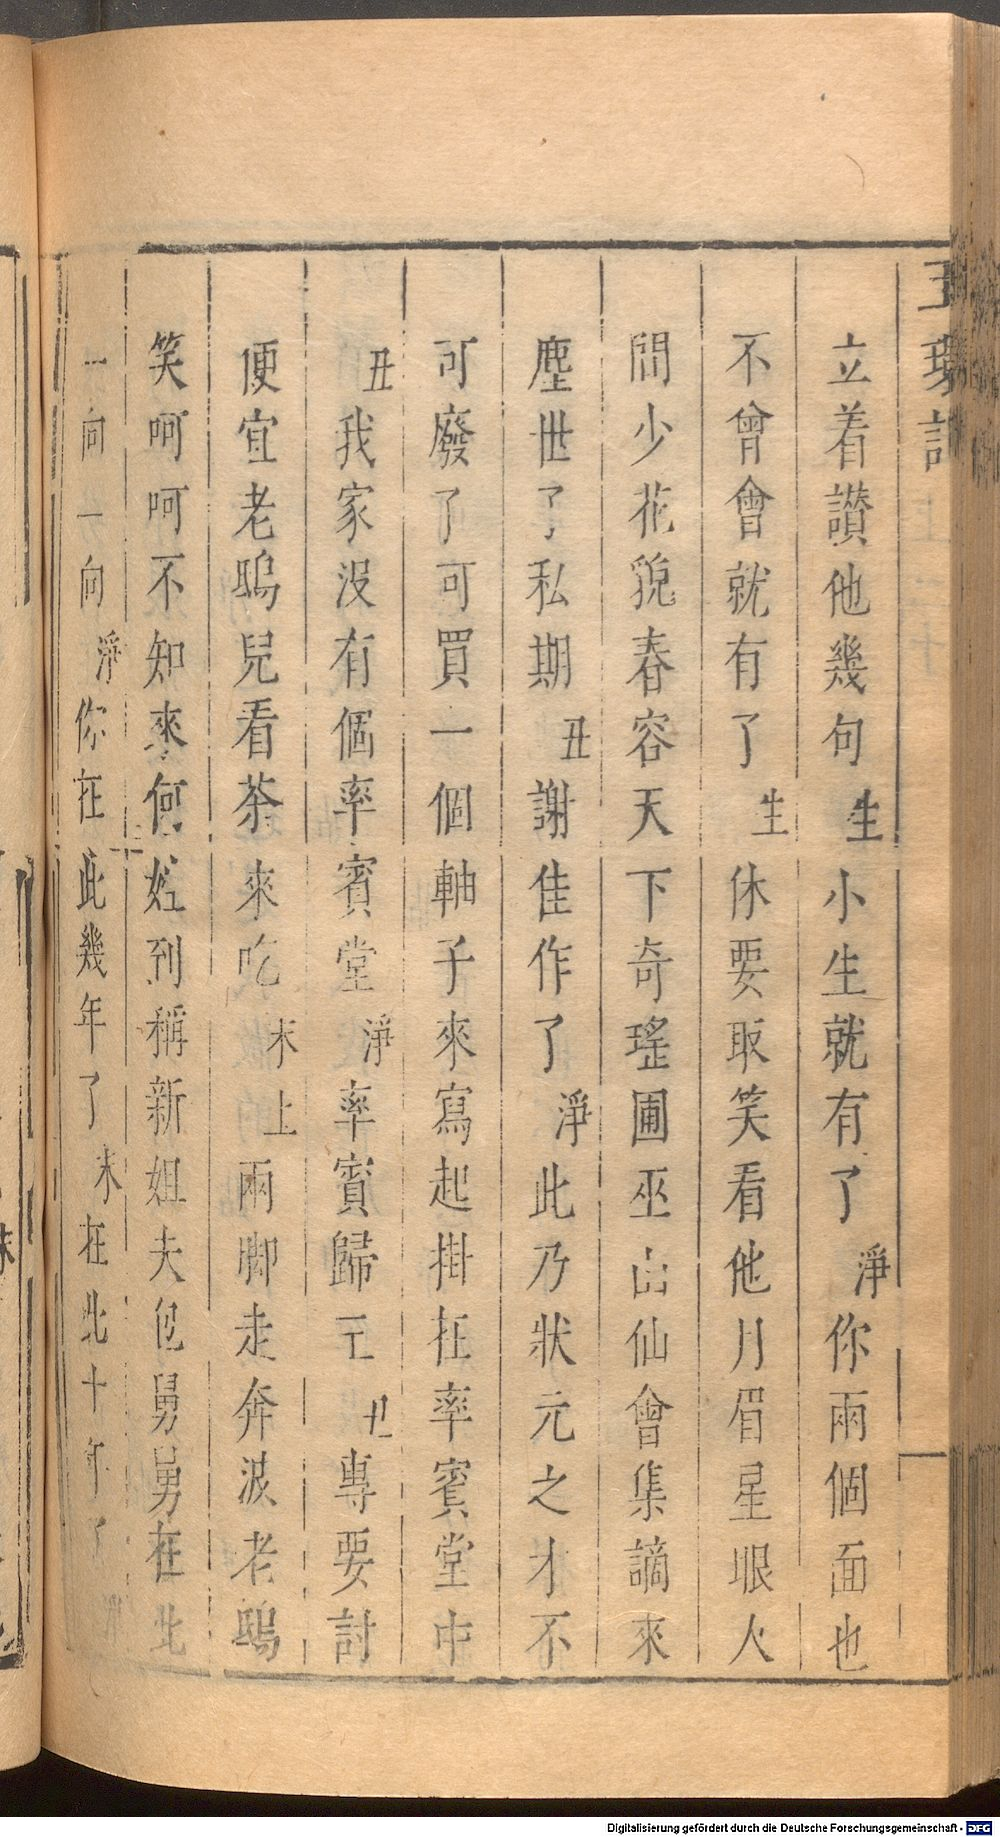 玉環記
立着讃他幾句生小生就有了淨你兩個面也
不曾會會就有了生休要取笑看他月眉星眼人
間少花貌春容天下奇瑤圃巫山仙會集謫來
塵世了私期丑謝佳作了淨此乃狀元之才不
可廢了可買一個軸子來寫起掛在率賓堂中
丑我家沒有個率賓堂淨率賓歸王丑專要討
便宜老鴇兒看茶來吃末上兩脚走奔波老鴇
笑呵呵不知來何姓到稱新姐夫包舅舅在此
一向一向淨你在此幾年了末在此十年了淨
Digitalisierung gefördert durch die Deutsche Forschungsgemeinschaft - DFG